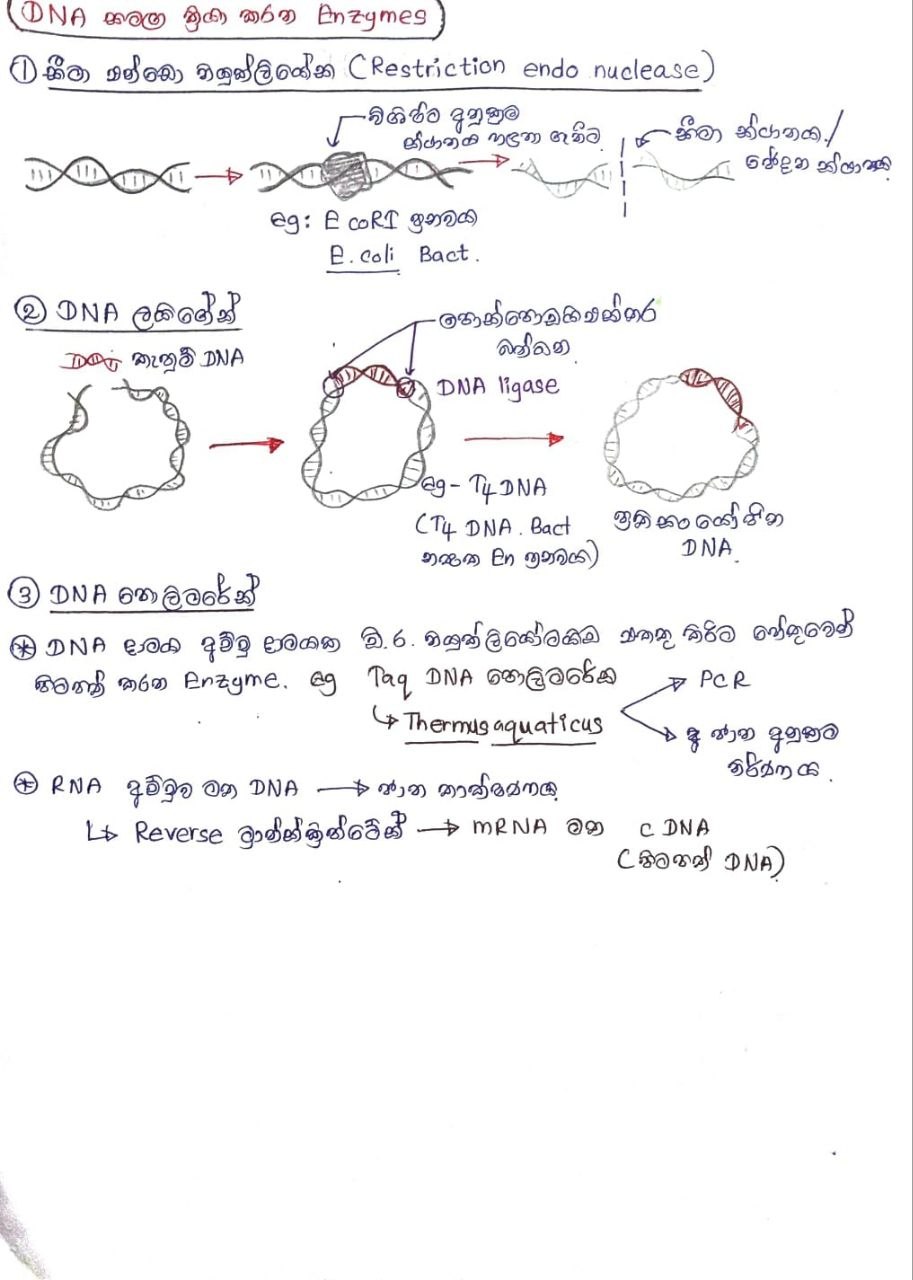 DNA සමඟ ක්‍රියා කරන Enzymes
① සීමා එන්ඩො නියුක්ලියේස (Restriction endo nuclease)
විශිෂ්ට අනුක්‍රම
ස්ථානය හඳුනා ගැනීම.
සීමා ස්ථානය/
ඡේදන ස්ථානය
eg: E coRI ප්‍රභවය
E. coli Bact.
② DNA ලයිගේස්
පොස්පොඩයිඑස්ටර
බන්ධන
කැතුම් DNA
DNA ligase
eg - T4 DNA
(T4 DNA. Bact
භක්ෂක En ප්‍රභවය)
ප්‍රතිසංයෝජිත
DNA.
③ DNA පොලිමරේස්
* DNA දාමය අච්චු දාමයක ඩි.ඔ. නියුක්ලියෝටයිඩ එකතු කිරීම හේතුවෙන්
පිටපත් කරන Enzyme. eg Taq DNA පොලිමරේස
↳ Thermus aquaticus
→ PCR
→ ජාන අනුක්‍රම
නිර්ණය.
* RNA අච්චුව මත DNA → ජාන
↳ Reverse ට්‍රාන්ස්ක්‍රිප්ටේස් → mRNA මත c DNA
(පිටපත් DNA)